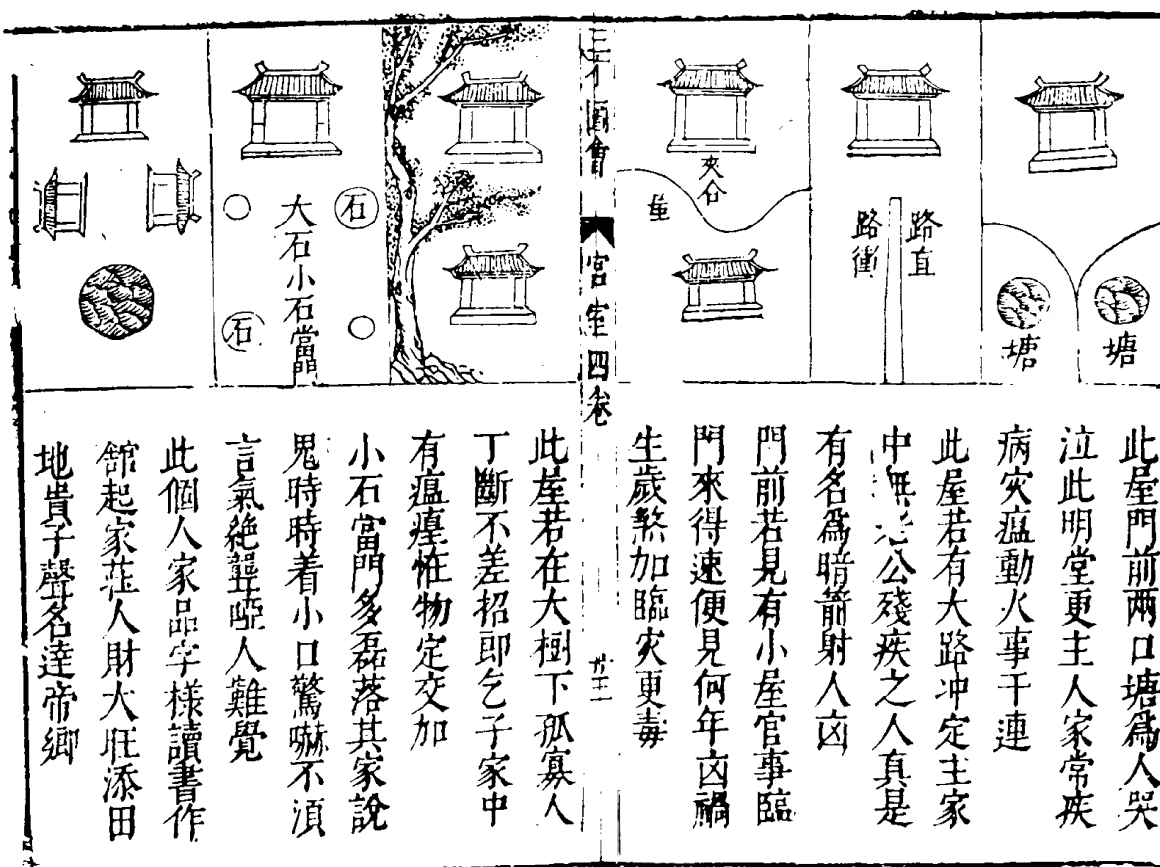 塘
塘
路直
路衝
夾谷
三才圖會
宮室四卷
廿二
石
大石小石當門
石
此屋門前兩口塘爲人哭
泣此明堂更主人家常疾
病灾瘟動火事干連
此屋若有大路冲定主家
中無老公殘疾之人真是
有名爲暗箭射人凶
門前若見有小屋官事臨
門來得速便見何年凶禍
生歲煞加臨灾更毒
此屋若在大樹下孤寡人
丁斷不差招郎乞子家中
有瘟瘽怪物定交加
小石當門多磊落其家說
鬼時時着小口驚嚇不須
言氣絶聾啞人難覺
此個人家品字樣讀書作
舘起家莊人財大旺添田
地貴子聲名逹帝鄉